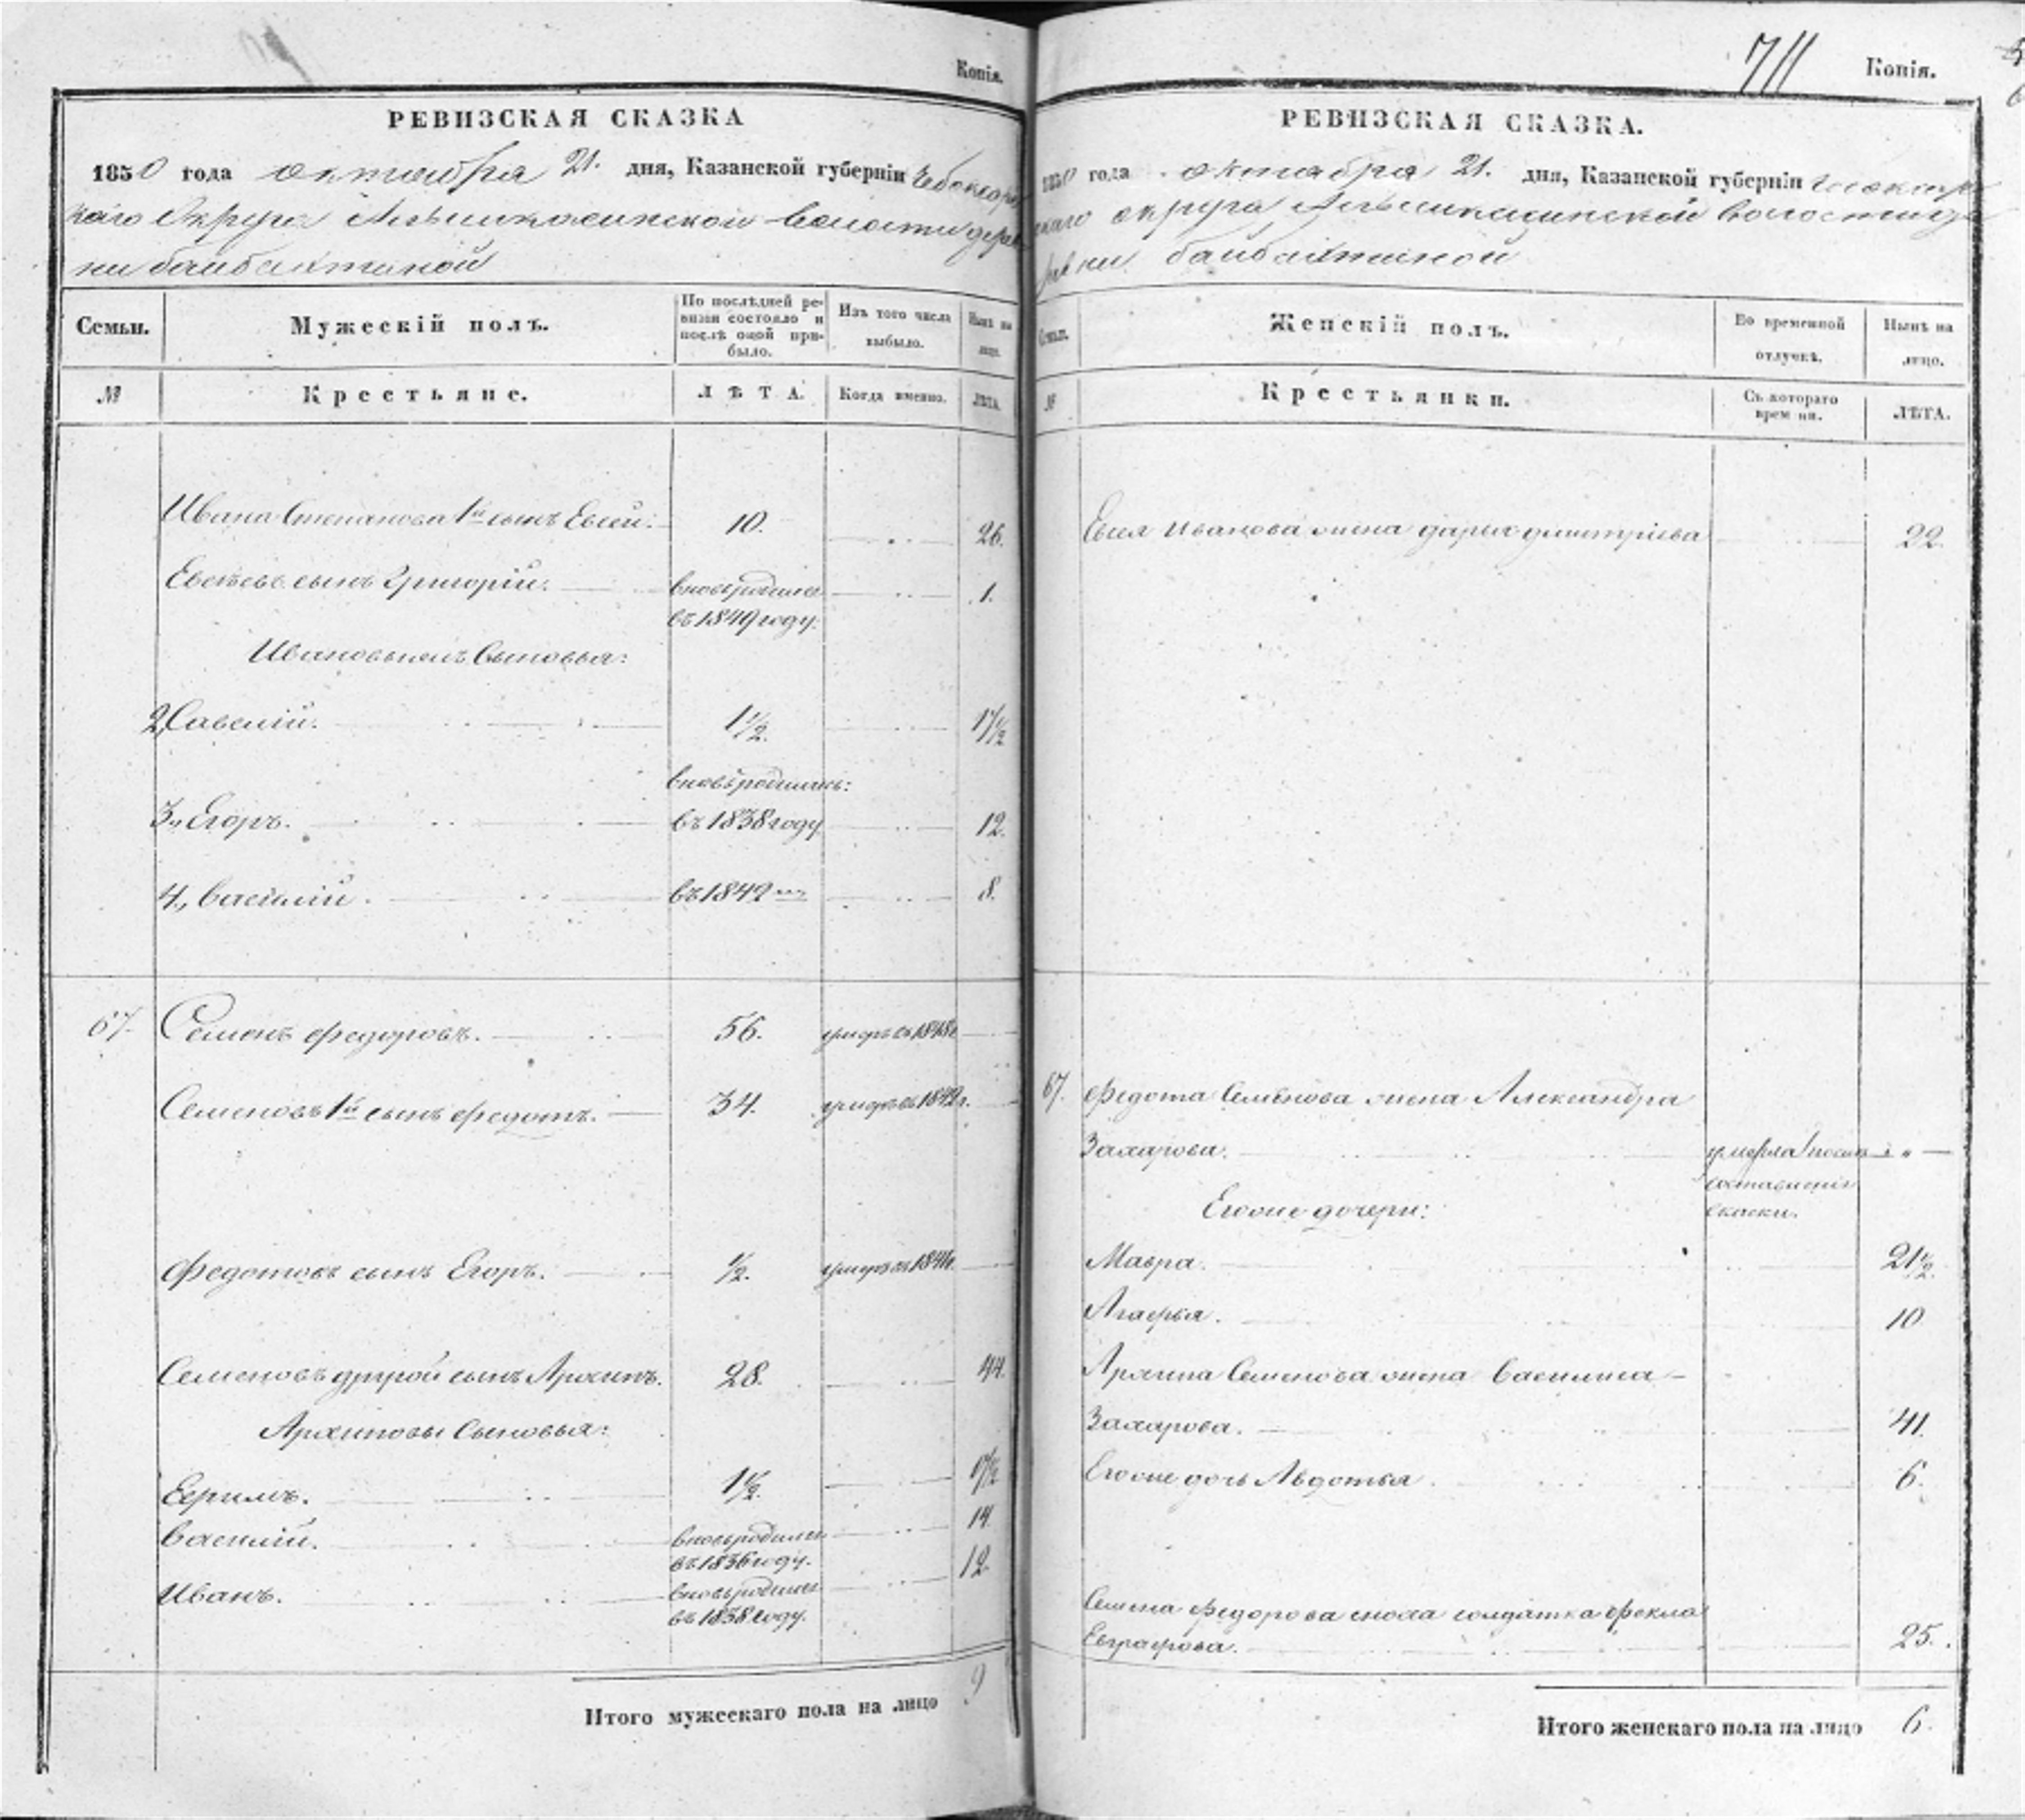 Копія.
РЕВИЗСКАЯ СКАЗКА
1850 года октября 21. дня, Казанской губерніи Чебоксар
скаго Округа Алымкасинской волости дерев
ни байбахтиной
Семьи.
Мужескій полъ.
По послѣдней ре-
визіи состояло и
послѣ оной при-
было.
Изъ того числа
выбыло.
Нынѣ на
лицо.
№
Крестьяне.
ЛѢТА.
Когда именно.
ЛѢТА.
Ивана Степанова 1й сынъ Евсей. 10. 26.
Евсѣевъ сынъ Григорій. вновь родился 1.
въ 1849 году.
Ивановыхъ Сыновья:
2, Савелій. 1½. 17½
вновь родились:
3,, Егоръ. въ 1838 году 12.
4,, Василій. въ 1842 8.
67. Семенъ Федоровъ. 56. умеръ въ 1848г
Семеновъ 1й сынъ Федотъ. 34. умеръ въ 1842г.
Федотовъ сынъ Егоръ. ½. умеръ въ
Семеновъ другой сынъ Архипъ. 28. 44.
Архиповы Сыновья:
Ефримъ. 1½. 17½
Василій. вновь родился 14.
въ 1836 году.
Иванъ. вновь родился 12.
въ 1838 году.
Итого мужескаго пола на лицо 9
711
Копія.
РЕВИЗСКАЯ СКАЗКА.
1850 года октября 21. дня, Казанской губерніи Чебоксар
скаго округа Алымкасинской волости де
ревни байбахтиной
Семьи.
Женскій полъ.
Во временной
отлучкѣ.
Нынѣ на
лицо.
№
Крестьянки.
Съ котораго
времени.
ЛѢТА.
Евсея Иванова жена дарья димитріева 22.
67. Федота Семенова жена Александра
Захарова. умерла посли
составленія
Егоже дочери: скаски.
Мавра. 21½.
Агафья. 10
Архипа Семенова жена Василиса
Захарова. 41.
Егоже дочь Авдотья 6.
Семена Федорова сноха солдатка Фекла
Евграфова. 25.
Итого женскаго пола на лицо 6.